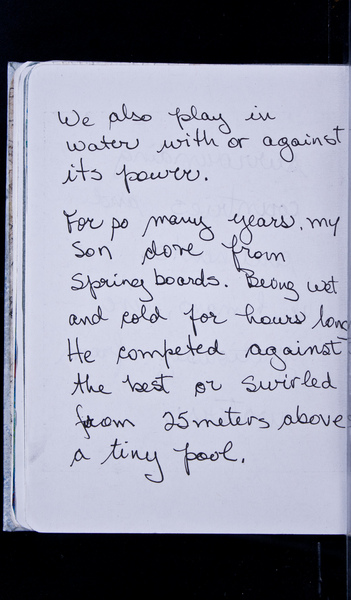 We also play in
water with or against
its power.
For so many years, my
Son dove from
Spring boards. Being wet
and cold for hours long
He competed against
the best or swirled
from 25 meters above
a tiny pool.